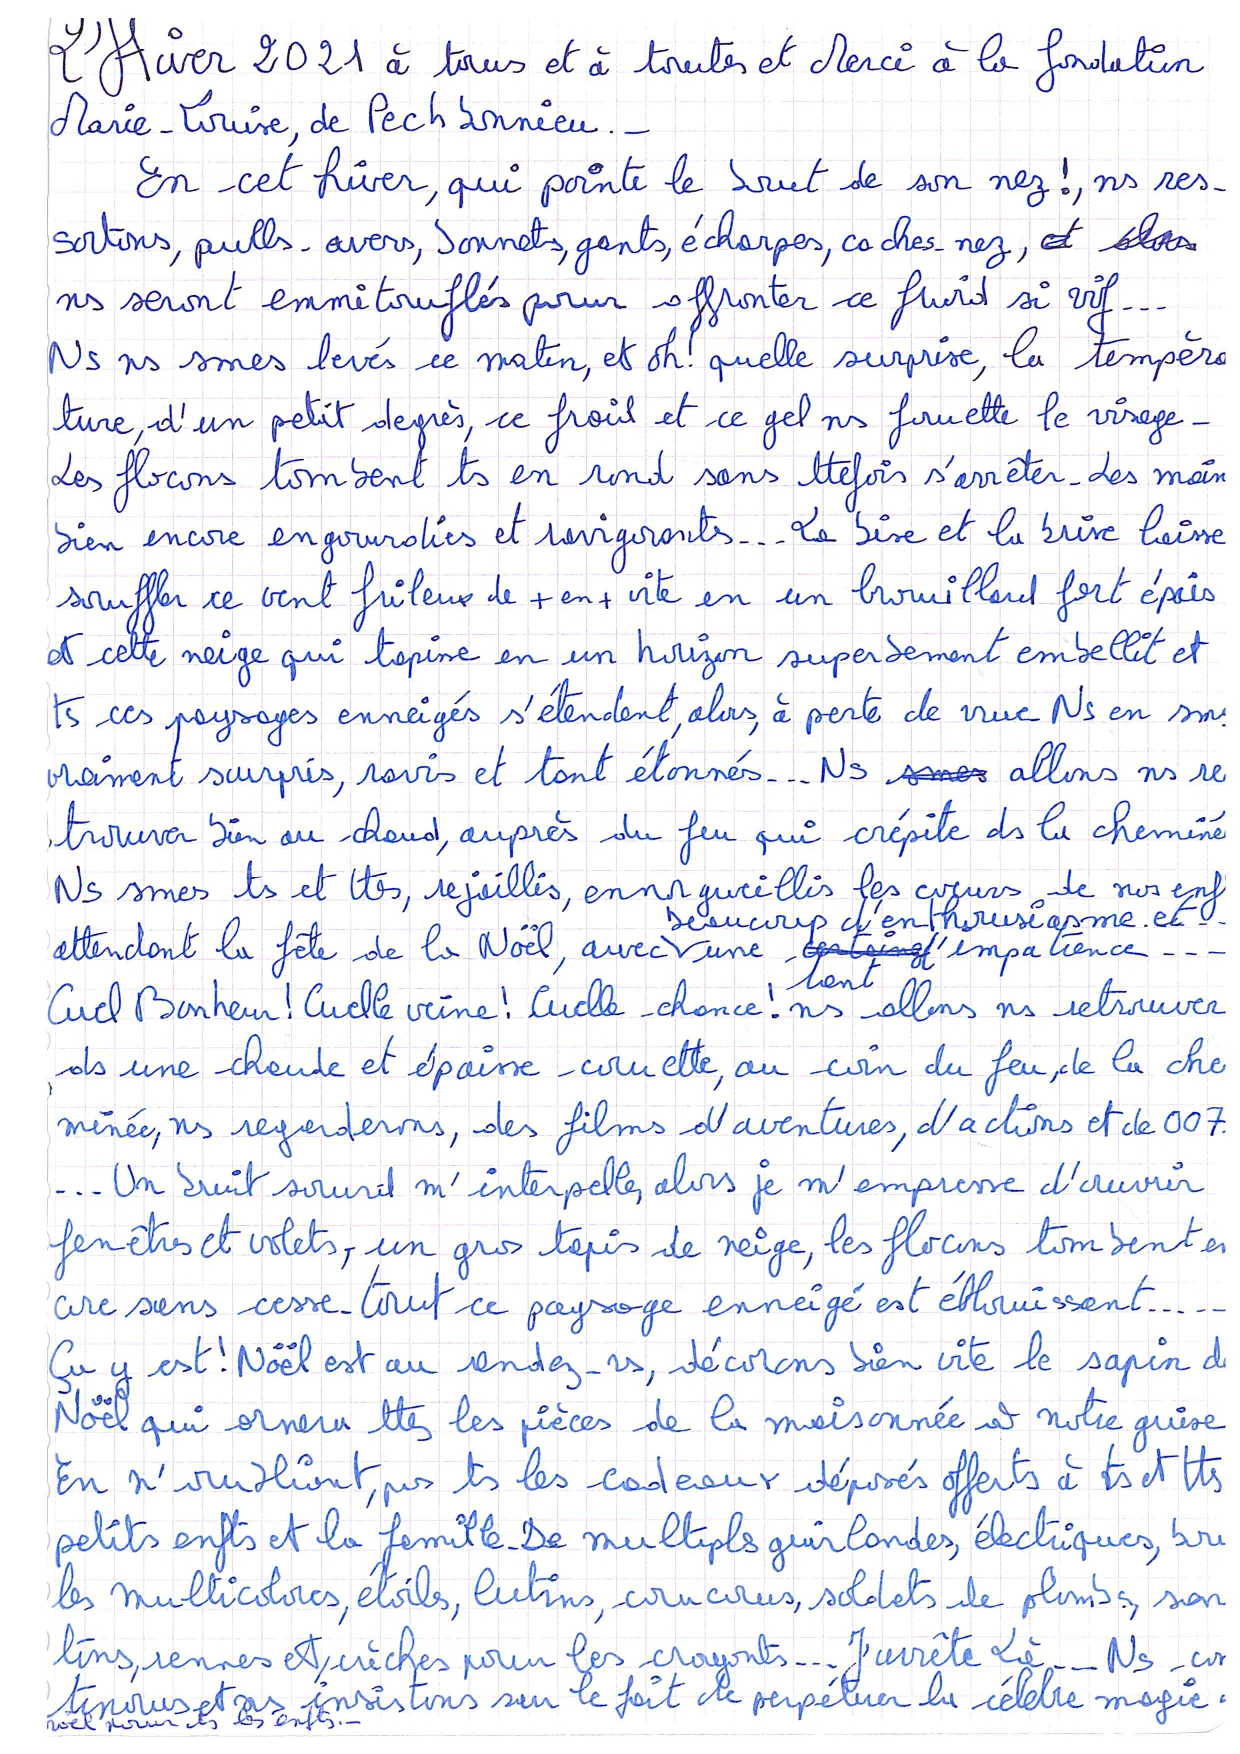 L'Hiver 2021 à tous et à toutes et Merci à la fondation
Marie-Louise, de Pechbonnieu.-
En cet hiver, qui pointe le bout de son nez!, ns res-
sortons, pulls-overs, bonnets, gants, écharpes, caches-nez, et alors
ns seront emmitouflés pour affronter ce froid si vif...
Ns ns smes levés ce matin, et oh! quelle surprise, la tempéra
ture, d'un petit degrès, ce froid et ce gel ns fouette le visage-
Les flocons tombent ts en rond sans ttefois s'arrêter-Les main
bien encore engourdies et ravigorants... La bise et la brise laisse
souffler ce vent frileux de + en + vite en un brouillard fort épais
et cette neige qui tapisse en un horizon superbement embellit et
ts ces paysages enneigés s'étendent, alors, à perte de vue Ns en sm
vraiment surpris, ravis et tant étonnés... Ns smes allons ns re
trouver bien au chaud, auprès du feu qui crépite ds la cheminé
Ns smes ts et ttes, rejaillis, ennorgueillis les cœurs de nos enf
beaucoup d'enthousiasme et..
attendant la fête de la Noël, avec une d'impatience ---
tant
Cuel Bonheur! Cuelle veine! Cuelle chance! ns allons ns retrouver
ds une chaude et épaisse couette, au coin du feu, de la che
minée, ns regarderons, des films d'aventures, d'actions et de 007.
... Un bruit sourd m'interpelle, alors je m'empresse d'ouvrir
fenêtres et volets, un gros tapis de neige, les flocons tombent en
core sans cesse-tout ce paysage enneigé est éblouissant.....
Ça y est! Noël est au rendez-vs, décorons bien vite le sapin d
Noël qui ornera ttes les pièces de la maisonnée à notre guise
En n'oubliant, pas ts les cadeaux déposés offerts à ts et tts
petits enfts et la famille-De multiples guirlandes, électriques, bou
les multicolores, étoiles, lutins, coucous, soldats de plombs, san
tins, rennes et, crèches pour les croyants... J'arrête Là... Ns con
tinous et ns insistons sur le fait de perpétuer la célèbre magie
noël pour ts les enfts.-